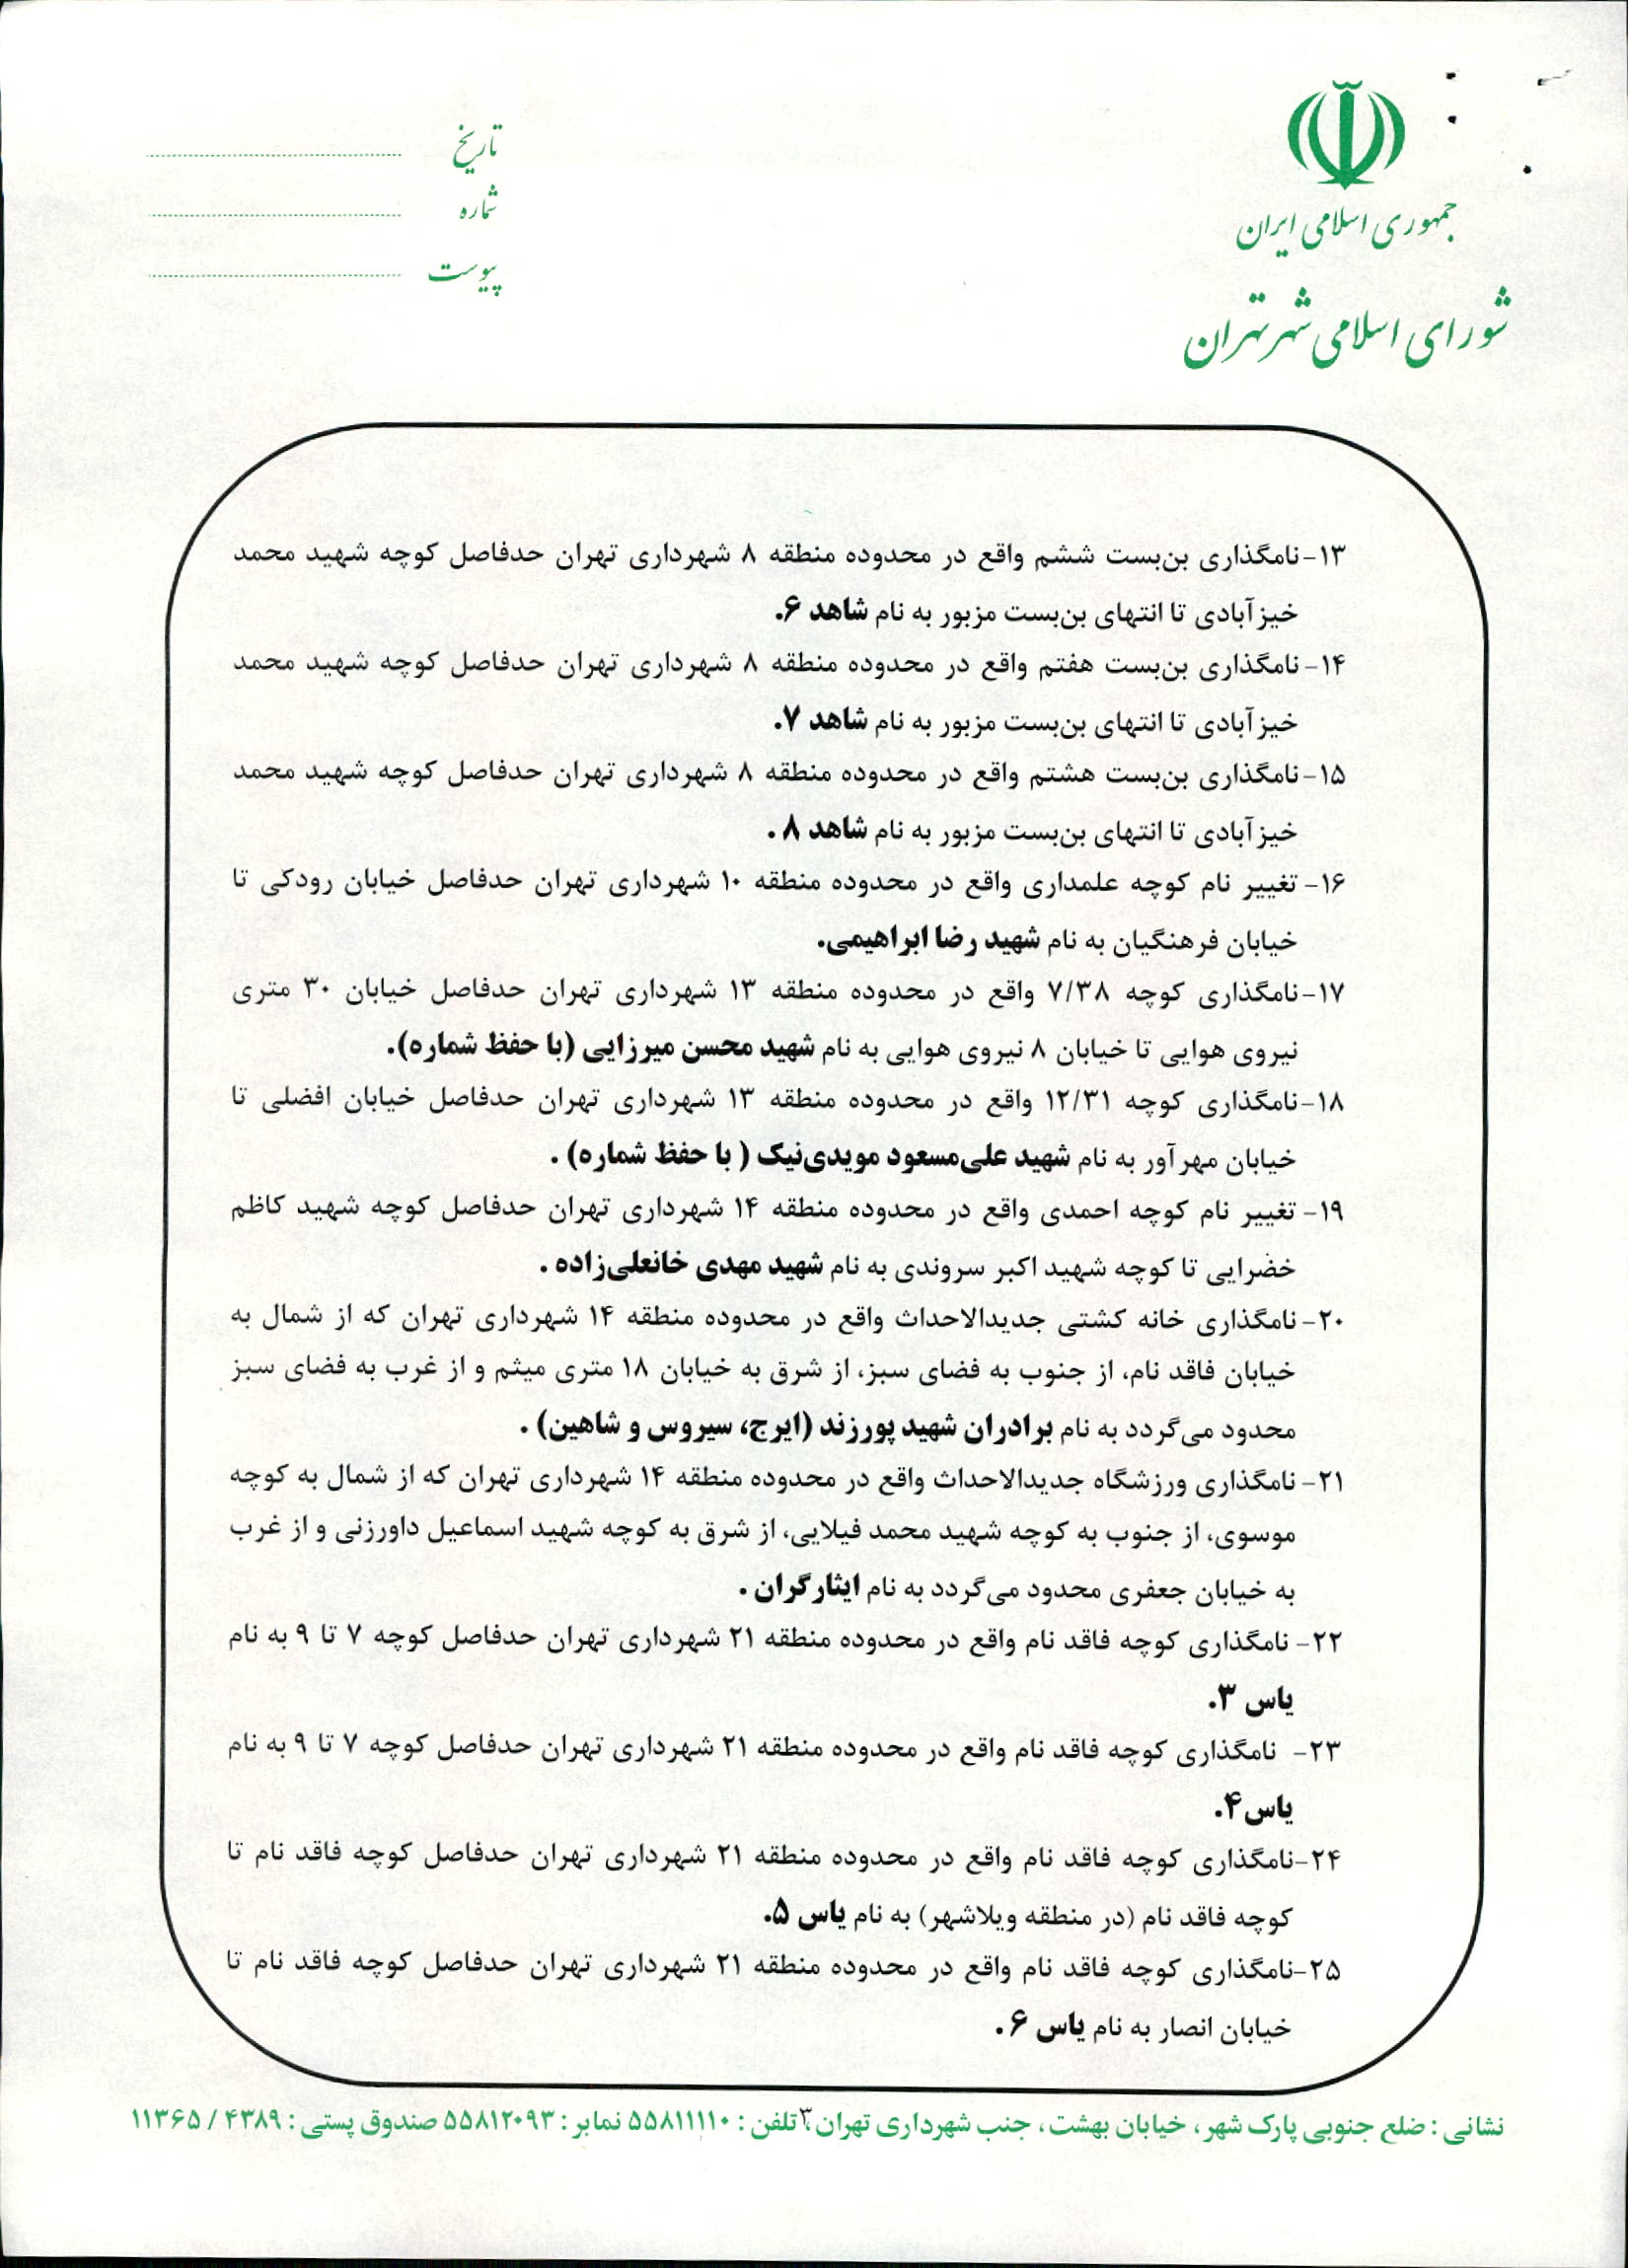 جمهوری اسلامی ایران
شورای اسلامی شهر تهران
تاریخ
شماره
پیوست
۱۳-نامگذاری بن‌بست ششم واقع در محدوده منطقه ۸ شهرداری تهران حدفاصل کوچه شهید محمد
خیزآبادی تا انتهای بن‌بست مزبور به نام شاهد ۶.
۱۴-نامگذاری بن‌بست هفتم واقع در محدوده منطقه ۸ شهرداری تهران حدفاصل کوچه شهید محمد
خیزآبادی تا انتهای بن‌بست مزبور به نام شاهد ۷.
۱۵-نامگذاری بن‌بست هشتم واقع در محدوده منطقه ۸ شهرداری تهران حدفاصل کوچه شهید محمد
خیزآبادی تا انتهای بن‌بست مزبور به نام شاهد ۸ .
۱۶- تغییر نام کوچه علمداری واقع در محدوده منطقه ۱۰ شهرداری تهران حدفاصل خیابان رودکی تا
خیابان فرهنگیان به نام شهید رضا ابراهیمی.
۱۷-نامگذاری کوچه ۷/۳۸ واقع در محدوده منطقه ۱۳ شهرداری تهران حدفاصل خیابان ۳۰ متری
نیروی هوایی تا خیابان ۸ نیروی هوایی به نام شهید محسن میرزایی (با حفظ شماره).
۱۸-نامگذاری کوچه ۱۲/۳۱ واقع در محدوده منطقه ۱۳ شهرداری تهران حدفاصل خیابان افضلی تا
خیابان مهرآور به نام شهید علی‌مسعود مویدی‌نیک ( با حفظ شماره) .
۱۹- تغییر نام کوچه احمدی واقع در محدوده منطقه ۱۴ شهرداری تهران حدفاصل کوچه شهید کاظم
خضرایی تا کوچه شهید اکبر سروندی به نام شهید مهدی خانعلی‌زاده .
۲۰-نامگذاری خانه کشتی جدیدالاحداث واقع در محدوده منطقه ۱۴ شهرداری تهران که از شمال به
خیابان فاقد نام، از جنوب به فضای سبز، از شرق به خیابان ۱۸ متری میثم و از غرب به فضای سبز
محدود می‌گردد به نام برادران شهید پورزند (ایرج، سیروس و شاهین) .
۲۱- نامگذاری ورزشگاه جدیدالاحداث واقع در محدوده منطقه ۱۴ شهرداری تهران که از شمال به کوچه
موسوی، از جنوب به کوچه شهید محمد فیلایی، از شرق به کوچه شهید اسماعیل داورزنی و از غرب
به خیابان جعفری محدود می‌گردد به نام ایثارگران .
۲۲- نامگذاری کوچه فاقد نام واقع در محدوده منطقه ۲۱ شهرداری تهران حدفاصل کوچه ۷ تا ۹ به نام
یاس ۳.
۲۳- نامگذاری کوچه فاقد نام واقع در محدوده منطقه ۲۱ شهرداری تهران حدفاصل کوچه ۷ تا ۹ به نام
یاس۴.
۲۴-نامگذاری کوچه فاقد نام واقع در محدوده منطقه ۲۱ شهرداری تهران حدفاصل کوچه فاقد نام تا
کوچه فاقد نام (در منطقه ویلاشهر) به نام یاس ۵.
۲۵-نامگذاری کوچه فاقد نام واقع در محدوده منطقه ۲۱ شهرداری تهران حدفاصل کوچه فاقد نام تا
خیابان انصار به نام یاس ۶ .
نشانی : ضلع جنوبی پارک شهر ، خیابان بهشت ، جنب شهرداری تهران ، ۳ تلفن : ۵۵۸۱۱۱۱۰ نمابر : ۵۵۸۱۲۰۹۳ صندوق پستی : ۴۳۸۹ / ۱۱۳۶۵